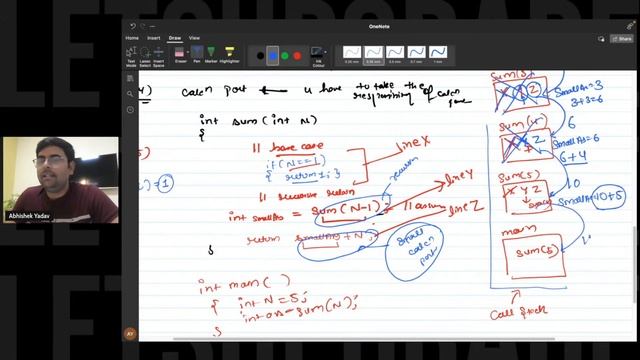 OneNote
Home Insert Draw View
Text Mode
Lasso Select
Insert Space
Eraser
Pen
Marker
Highlighter
Ink Colour
0.25 mm
0.35 mm
0.5 mm
0.7 mm
1 mm
calcn part ← u have to take the responsibility of calcn part
int sum(int N)
{
// base case
if(N==1)
{ return 1; }
line X
// recursive return
int smallAns = sum(N-1); // assum
line Y
return smallAns + N;
line Z
small calcn part
}
int main( )
{ int N=5;
int ans=sum(N);
}
=1
sum(3)
X Y Z
smallAns=3
3+3=6
6
sum(4)
X Y Z
smallAns=6
6+4
10
sum(5)
X Y Z
smallAns=10+5
main
sum(5)
Call Stack
Abhishek Yadav
AY